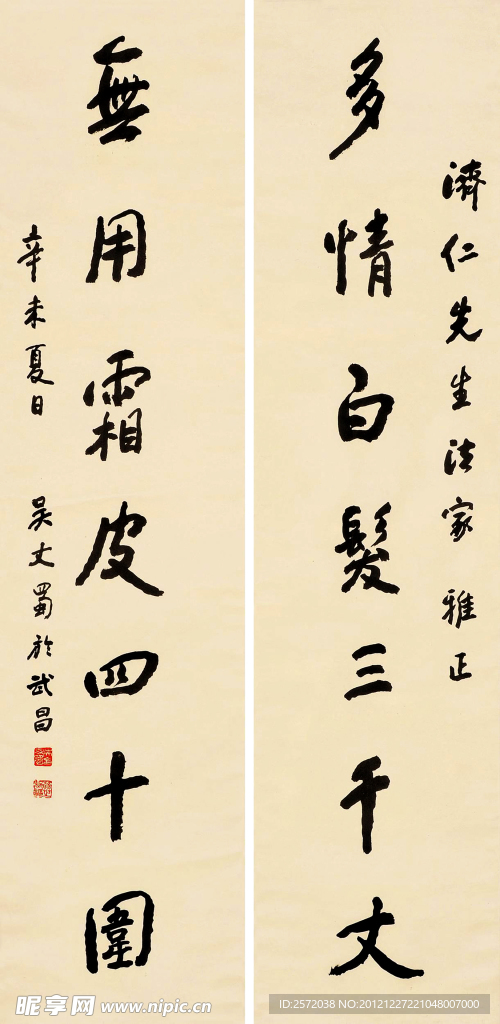 濟仁先生法家雅正
多情白髮三千丈
無用霜皮四十圍
辛未夏日 吴丈蜀於武昌
昵享网 www.nipic.cn
ID:2572038 NO:20121227221048007000